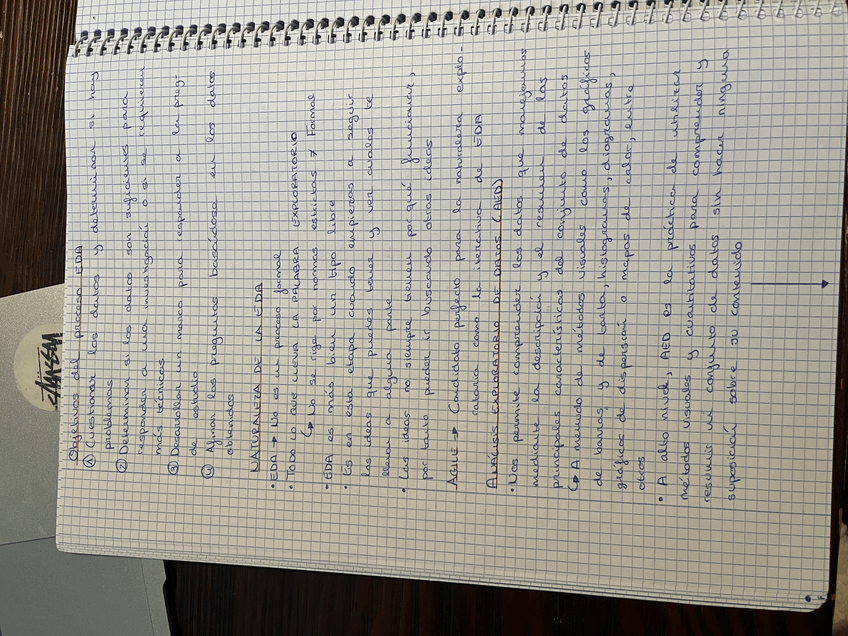 Objetivos del proceso EDA
① Cuestionar los datos y determinar si hay
problemas
② Determinar si los datos son suficientes para
responder a una investigación o si se requieren
más técnicas
③ Desarrollar un marco para responder a la preg-
de estudio
④ Afinar las preguntas basándose en los datos
obtenidos
NATURALEZA DE LA EDA
• EDA → No es un proceso formal
• TODO LO QUE LLEVA LA PALABRA EXPLORATORIO
↳ No se rige por normas estrictas ≠ Formal
• EDA es más bien un tipo libre
• Es en esta etapa cuando empiezas a seguir
las ideas que puedes tener y ver cuales te
llevan a alguna parte
• Las ideas no siempre tienen por qué funcionar,
por tanto pueden ir buscando otras ideas
AGILE → Candidato perfecto para la naturaleza explo-
ratoria como la iterativa de EDA
ANÁLISIS EXPLORATORIO DE DATOS (AED)
• Nos permite comprender los datos que manejamos
mediante la descripción y el resumen de las
principales características del conjunto de datos
↳ A menudo de métodos visuales como los gráficos
de barras y de barta, histogramas, diagramas,
gráficos de dispersión o mapas de calor, entre
otros
• A alto nivel, AED es la práctica de utilizar
métodos visuales y cuantitativos para comprender y
resumir un conjunto de datos sin hacer ninguna
suposición sobre su contenido
STÜSSY